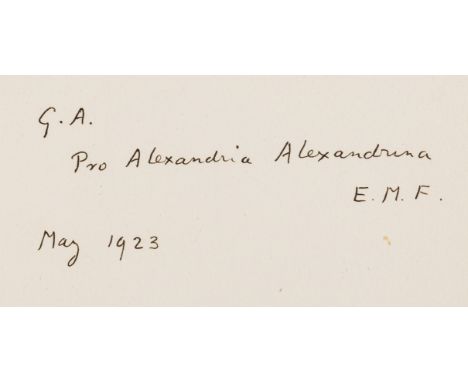 G.A.
Pro Alexandria Alexandrina
E.M.F.
May 1923